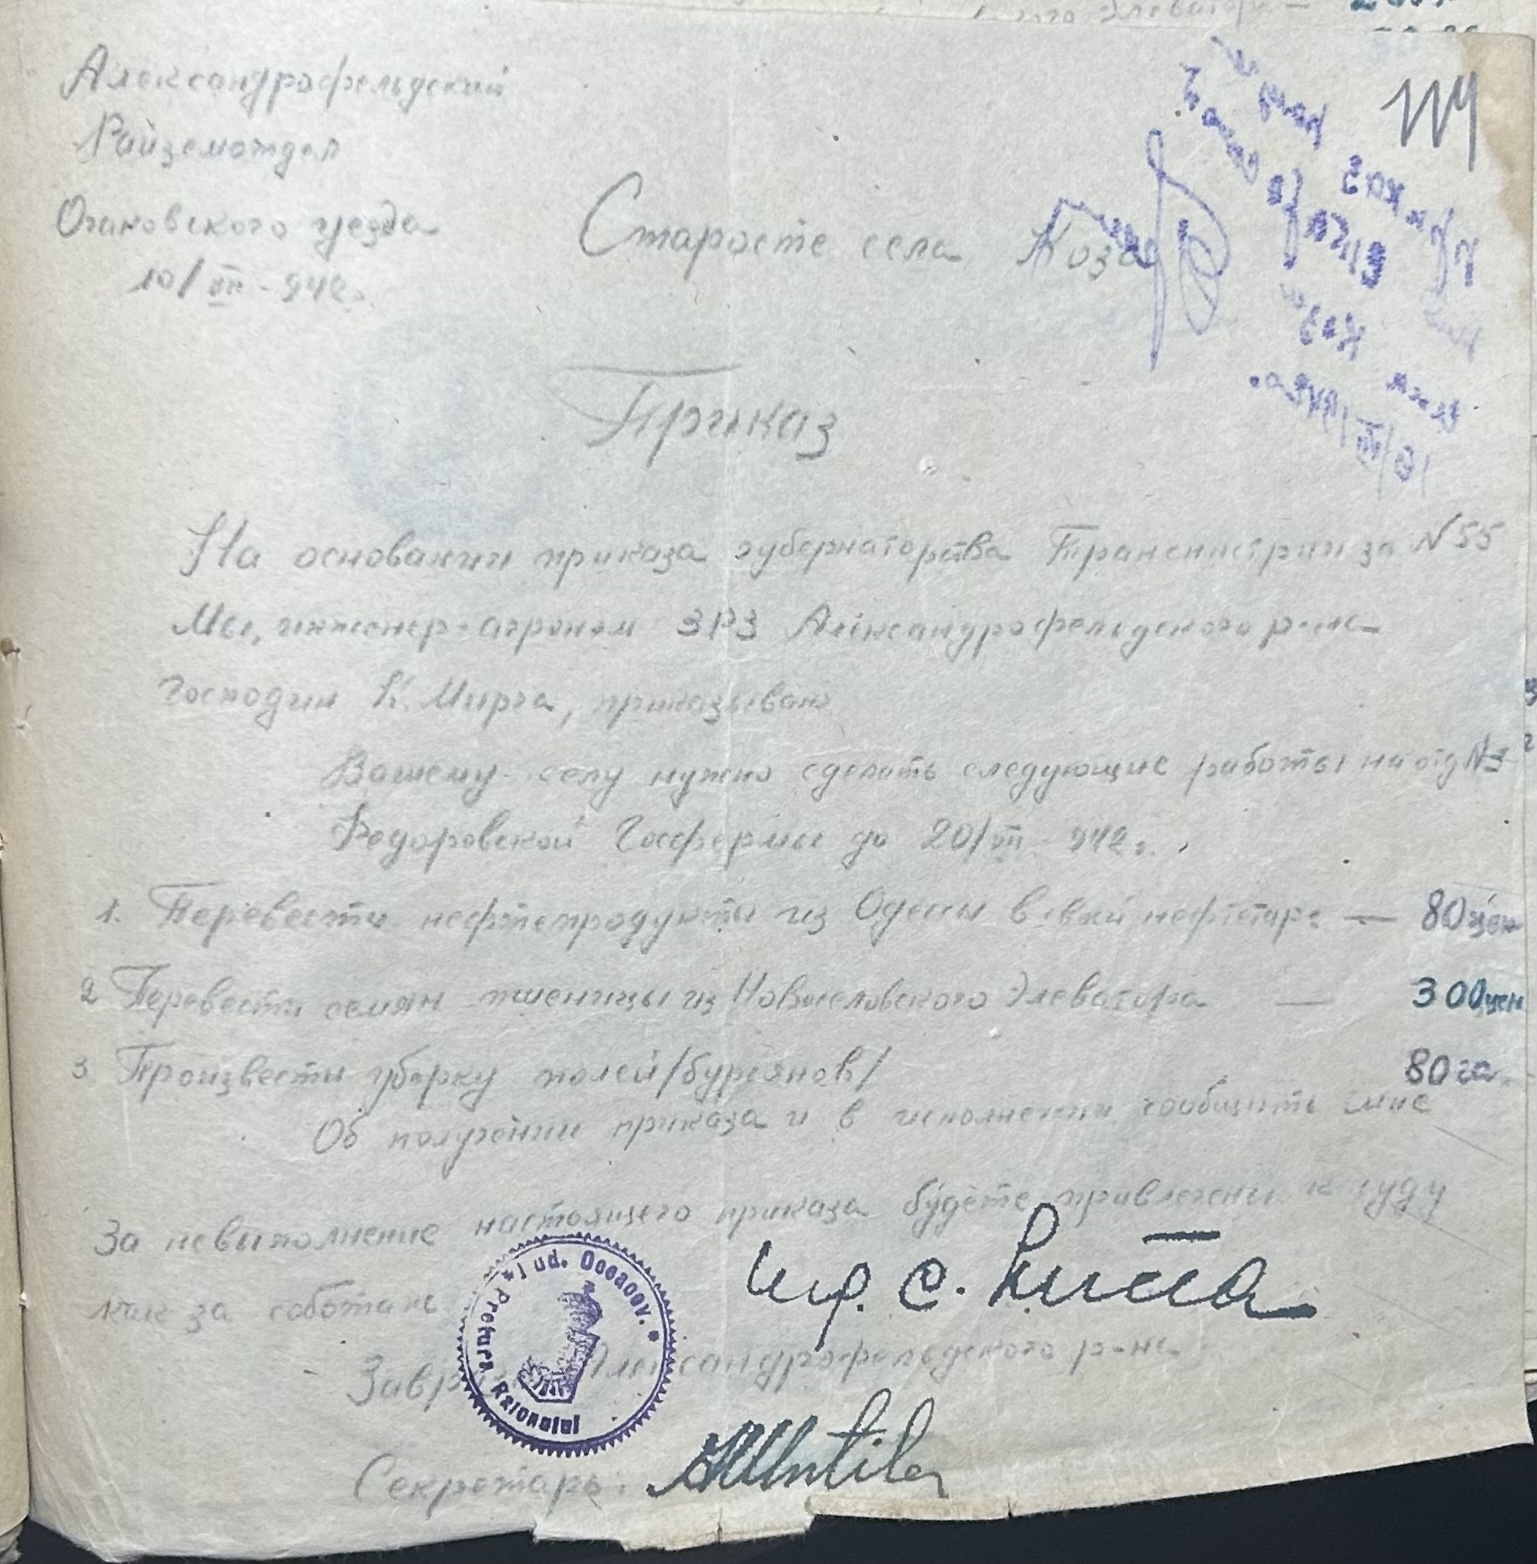 Александрофельдский
Райземотдел
Очаковского уезда
10/VII - 942г.
Старосте села
Приказ
На основании приказа губернаторства Транснистрии за N55
Мы, инженер-агроном ЗРЗ Александрофельдского р-на
Господин К. Мирча, приказываю
Вашему селу нужно сделать следующие работы на отд N3
Федоровской Госфермы до 20/VII 942г.
1. Перевести нефтепродукты из Одессы — 80 цен
2 Перевести семян пшеницы из Новоселовского Элеватора — 300 цен
3 Произвести уборку полей /бурянов/ 80 га
Об получении приказа и в исполнении сообщить мне
За невыполнение настоящего приказа будете привлечены к суду
как за саботаж
Александрофельдского р-на
Pretura Raionului ud. Oceacov.
Секретарь: